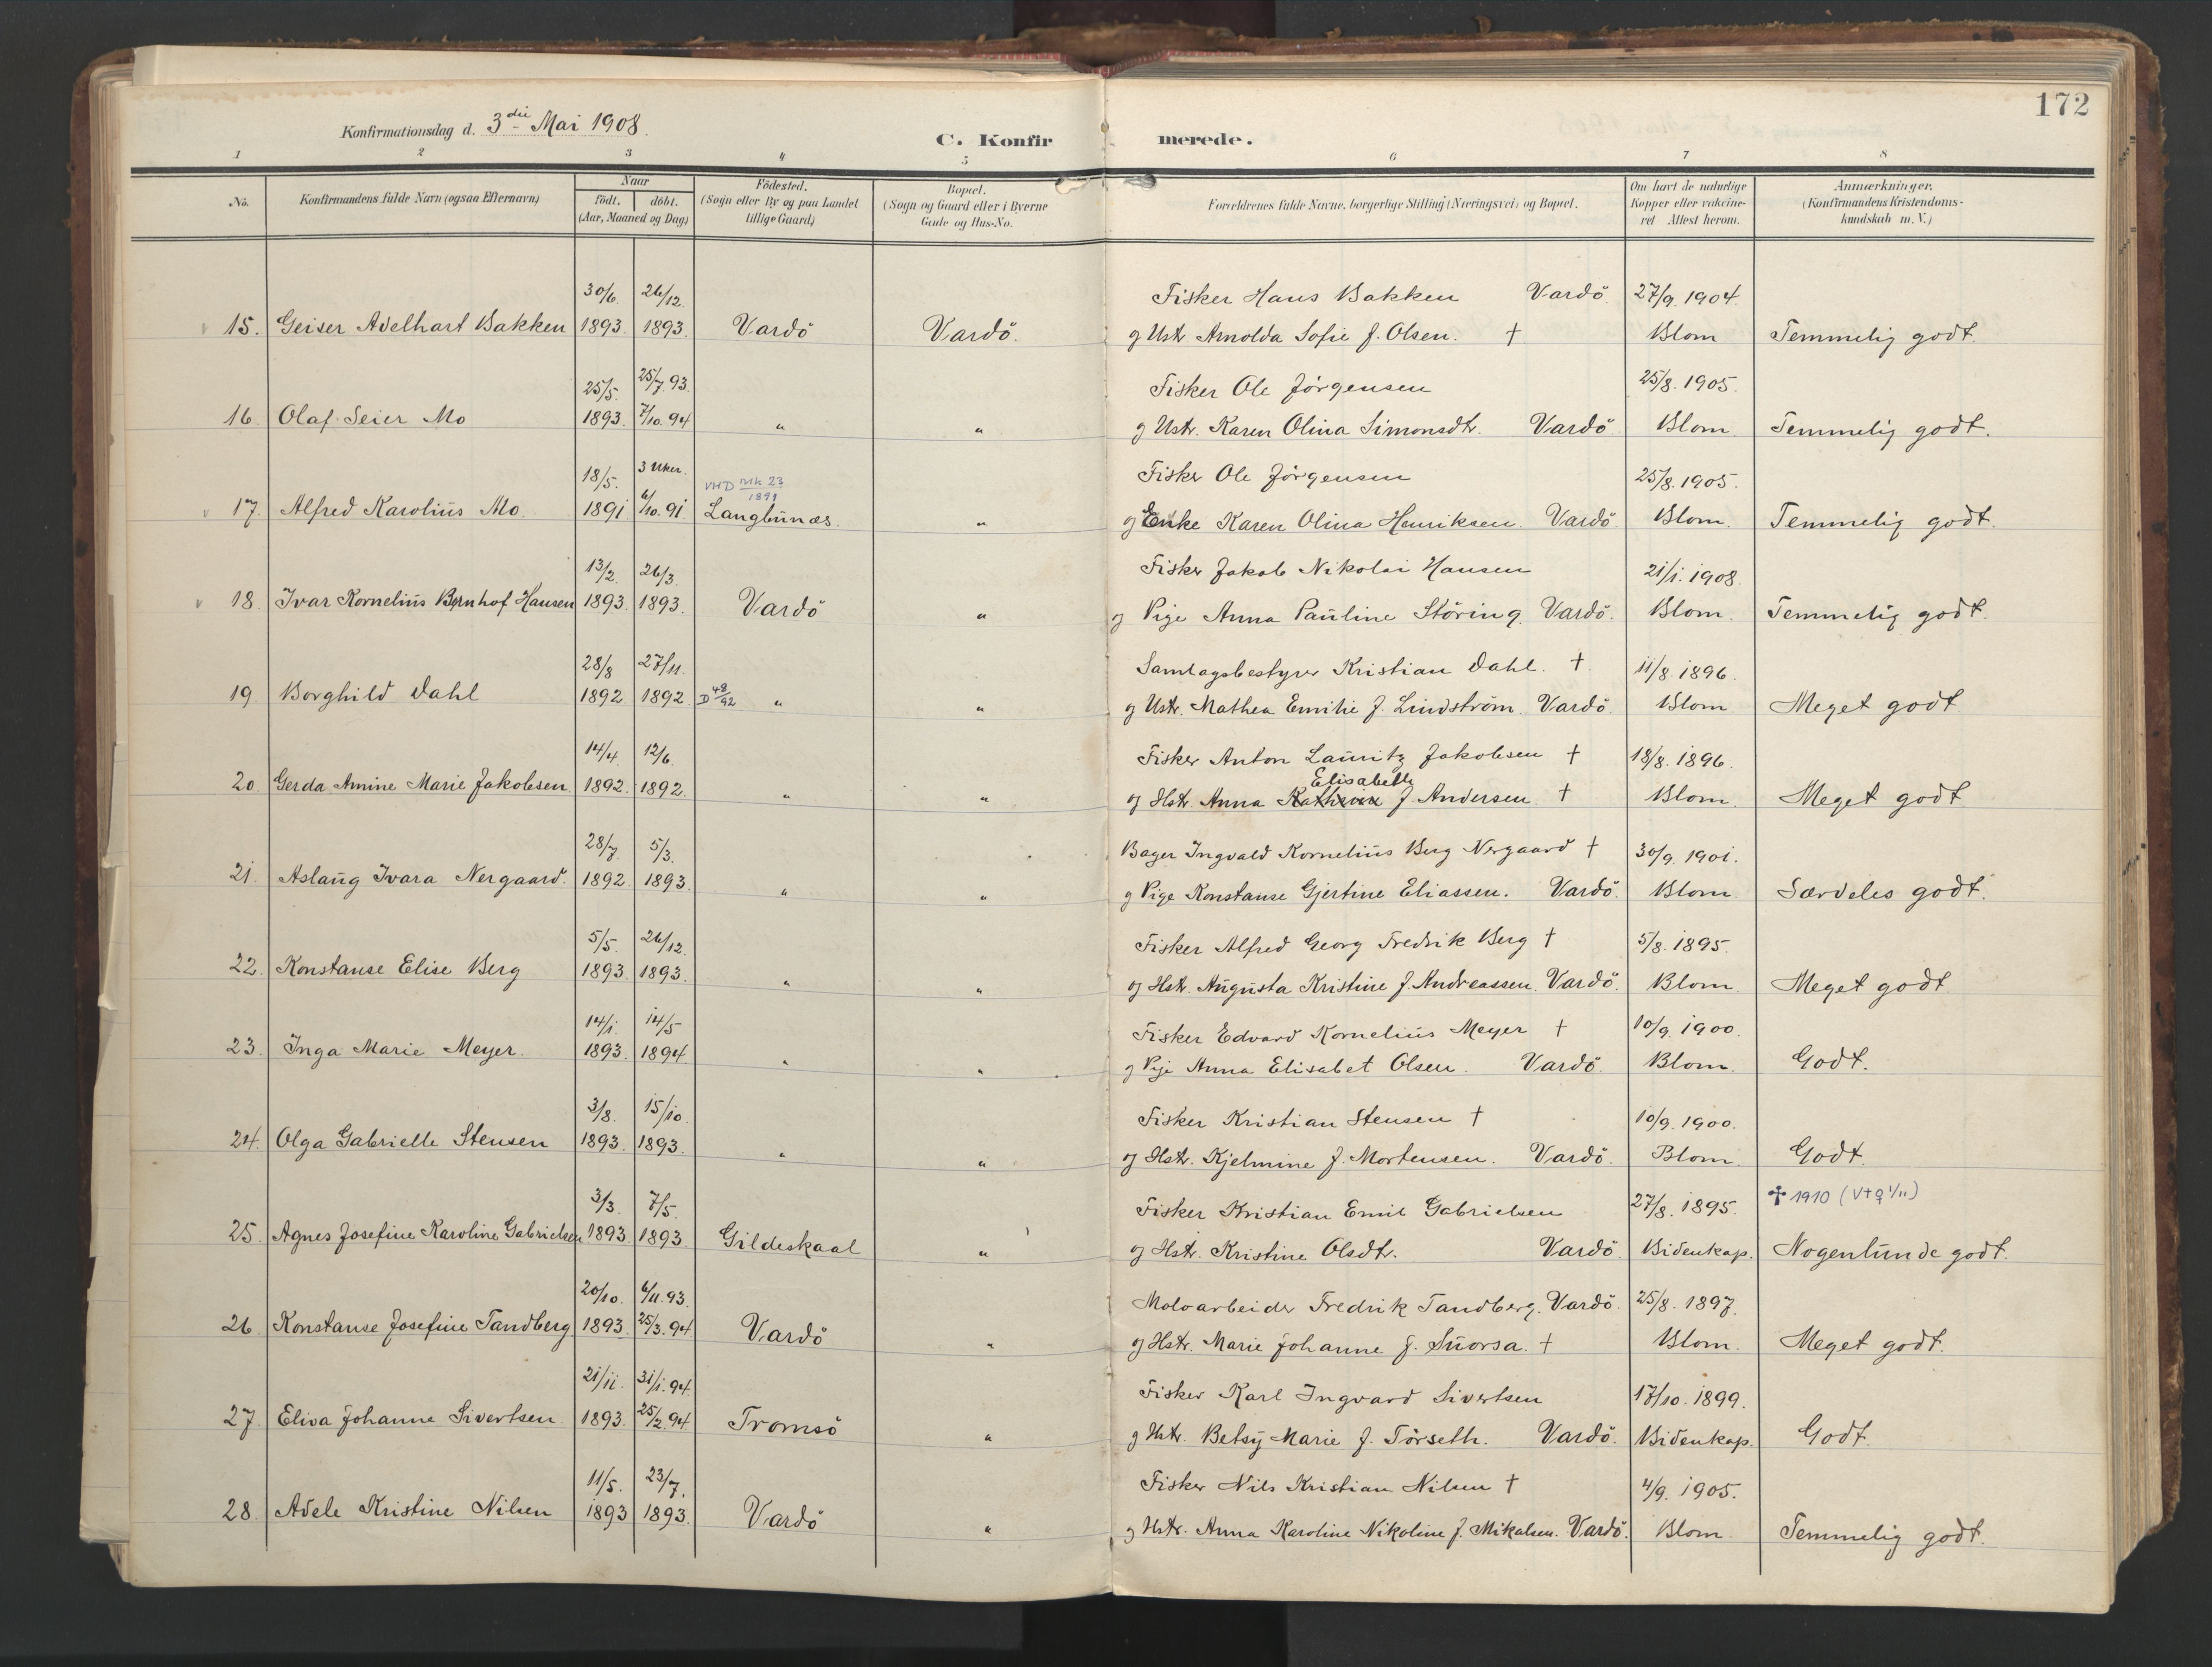 172
Konfirmationsdag d. 3die Mai 1908.
C. Konfirmerede.
1 2 3 4 5 6 7 8
No. Konfirmandens fulde Navn (ogsaa Efternavn) Naar født. døbt. (Aar, Maaned og Dag) Fødested. (Sogn eller By og paa Landet tillige Gaard) Bopæl. (Sogn og Gaard eller i Byerne Gade og Hus-No. Forældrenes fulde Navne, borgerlige Stilling (Næringsvei) og Bopæl. Om havt de naturlige Kopper eller vakcineret Attest herom. Anmærkninger. (Konfirmandens Kristendomskundskab m. V.)
30/6. 26/12. Fisker Hans Bakken Vardö 27/9. 1904.
v 15. Geiser Adelhart Bakken 1893. 1893. Vardö Vardö. og Ustr. Arnolda Sofie f. Olsen. † Blom Temmelig godt.
25/5. 25/7. 93. Fisker Ole Jörgensen 25/8. 1905.
16. Olaf Seier Mo 1893. 7/10. 94 " " og Ustr. Karen Olina Simonsdtr. Vardö Blom Temmelig godt.
18/5. 3 Uker. VHD nik 23 1891 Fisker Ole Jörgensen 25/8. 1905.
v 17. Alfred Karolius Mo. 1891 6/10. 91 Langbunæs. " og Enke Karen Olina Henriksen. Vardö Blom. Temmelig godt.
13/2. 26/3. Fisker Jakob Nikolai Hansen 21/1. 1908.
v 18. Ivar Kornelius Bernhof Hansen 1893. 1893. Vardö " og Pige Anna Pauline Störing. Vardö. Blom. Temmelig godt.
28/8 27/11. Samlagsbestyrer Kristian Dahl. † 11/8 1896.
19. Borghild Dahl 1892 1892 D 48/92 " " og Ustr. Mathea Emilie f. Lindström. Vardö Blom Meget godt
14/4. 12/6. Fisker Anton Lauritz Jakobsen † 18/8. 1896.
Elisabeth
20. Gerda Amine Marie Jakobsen 1892. 1892. " " og Hstr. Anna Kathrine f. Andersen. † Blom. Meget godt
28/7. 5/3. Bager Ingvald Kornelius Berg Nergaard † 30/9. 1901.
21. Aslaug Ivara Nergaard. 1892. 1893. " " og Pige Konstanse Gjertine Eliassen. Vardö. Blom Særdeles godt.
5/5. 26/12. Fisker Alfred Georg Fredrik Berg † 5/8. 1895.
22. Konstanse Elise Berg 1893. 1893. " " og Hstr. Augusta Kristine f. Andreassen. Vardö. Blom. Meget godt
14/1. 14/5 Fisker Edvard Kornelius Meyer † 10/9. 1900.
23. Inga Marie Meyer. 1893. 1894. " " og Pige Anna Elisabet Olsen. Vardö. Blom. Godt.
3/8. 15/10. Fisker Kristian Stensen † 10/9. 1900.
24. Olga Gabrielle Stensen 1893. 1893. " " og Hstr. Kjelmine f. Mortensen. Vardö. Blom. Godt.
3/3. 7/5. Fisker Kristian Emil Gabrielsen 27/8. 1895. ✝ 1910 (V+♀ 1/11)
25. Agnes Josefine Karoline Gabrielsen 1893. 1893. Gildeskaal " og Hstr. Kristine Olsdtr. Vardö. Bidenkap. Nogenlunde godt.
20/10. 6/11. 93. Moloarbeider Fredrik Tandberg. Vardö. 25/8. 1897.
26. Konstanse Josefine Tandberg 1893. 25/3. 94 Vardö " og Hstr. Marie Johanne f. Suorsa. † Blom. Meget godt.
21/11. 31/1. 94. Fisker Karl Ingvard Sivertsen 17/10. 1899.
27. Eliva Johanne Sivertsen. 1893. 25/2. 94 Tromsö " og Hstr. Betsy Marie f. Törseth. Vardö. Bidenkap. Godt.
11/5. 23/7. Fisker Nils Kristian Nilsen † 4/9. 1905.
28. Adele Kristine Nilsen 1893 1893. Vardö " og Hstr. Anna Karoline Nikoline f. Mikalsen. Vardö. Blom. Temmelig godt.